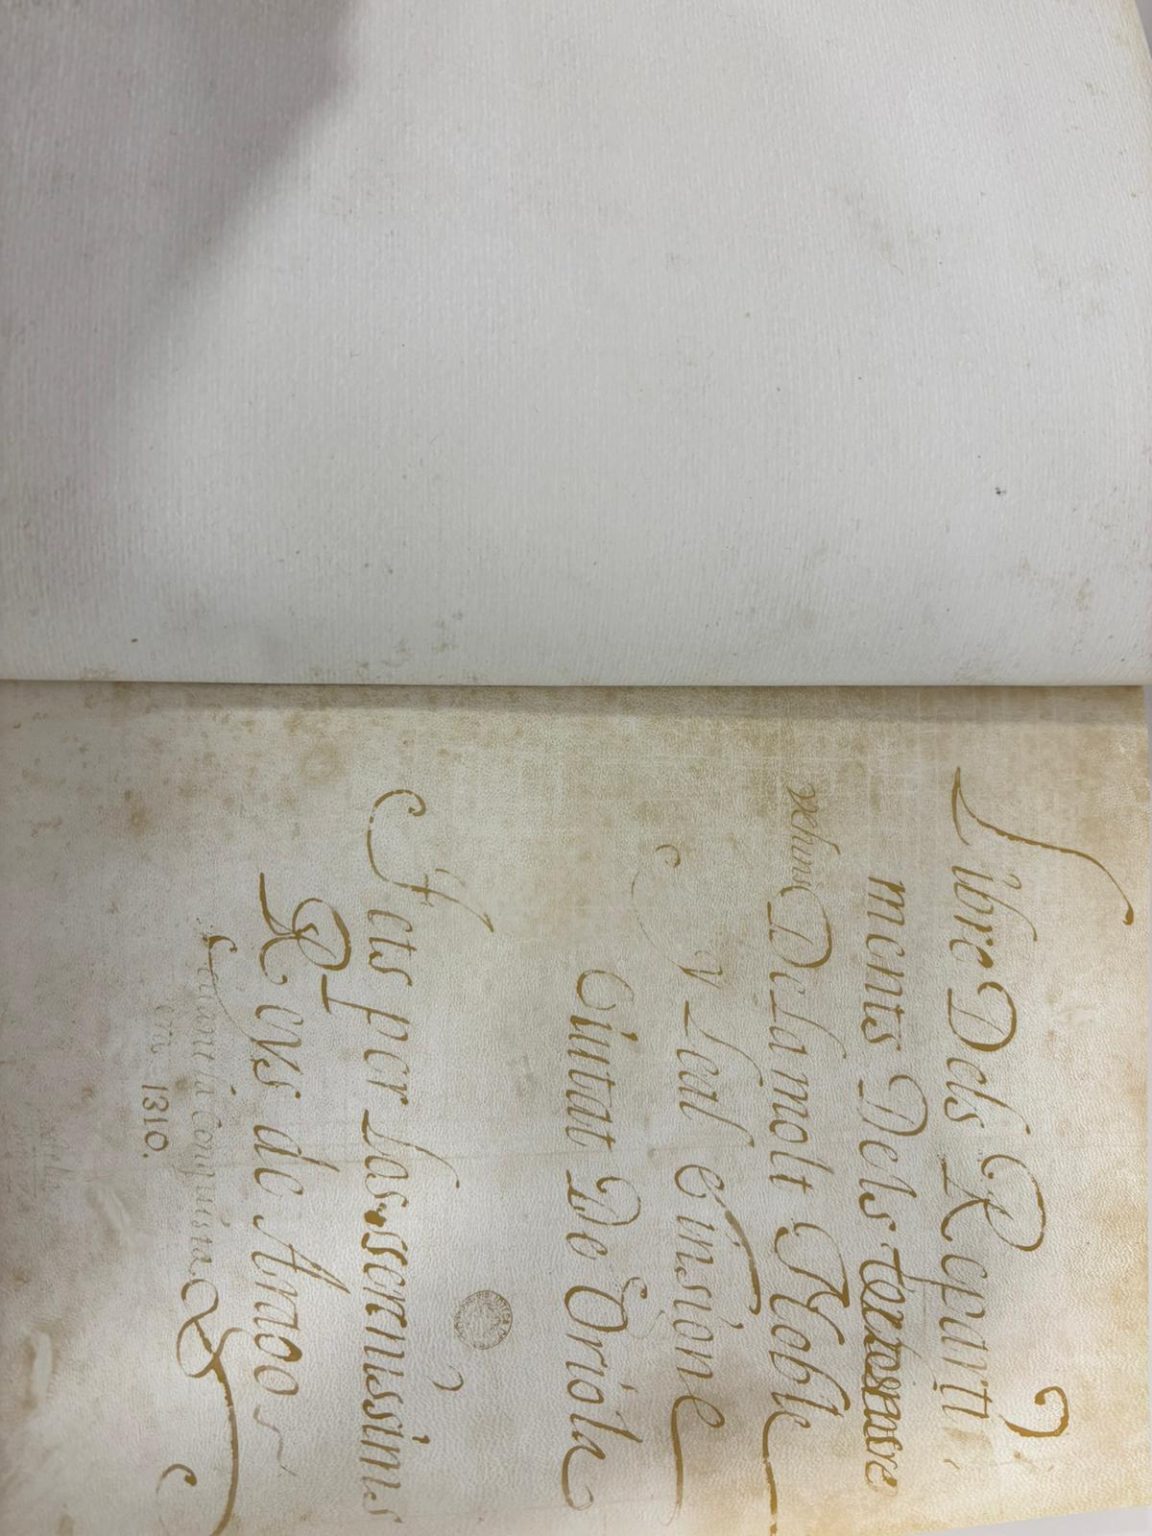 Libre Dels Reparti,
ments Dels
De La molt Noble
Y Leal E insigne
Ciutat De Oriola
Fets per Los serenissims
Reys de Arago
en 1310.